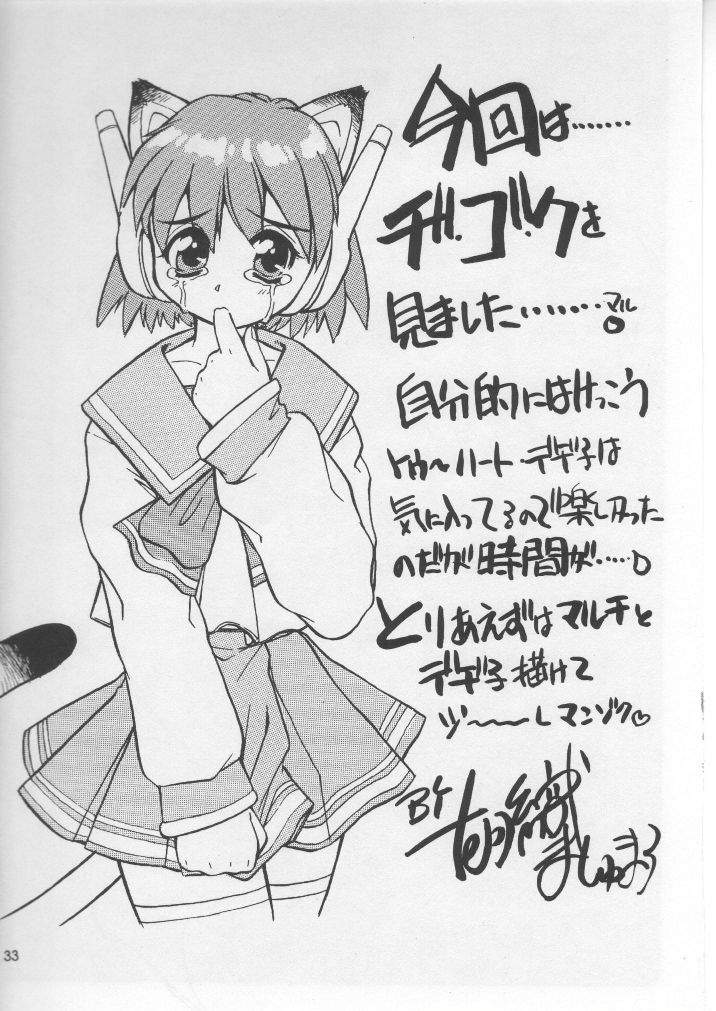 今回は……
デ・ゴ・クを
見ました……マル。
自分的にはけっこう
トゥ〜ハート・デギ子は
気に入ってるので楽しかった
のだが時間が……。
とりあえずはマルチと
デギ子描けて
ヅ〜〜しマンゾク♡
BY
ましゅまろ
33